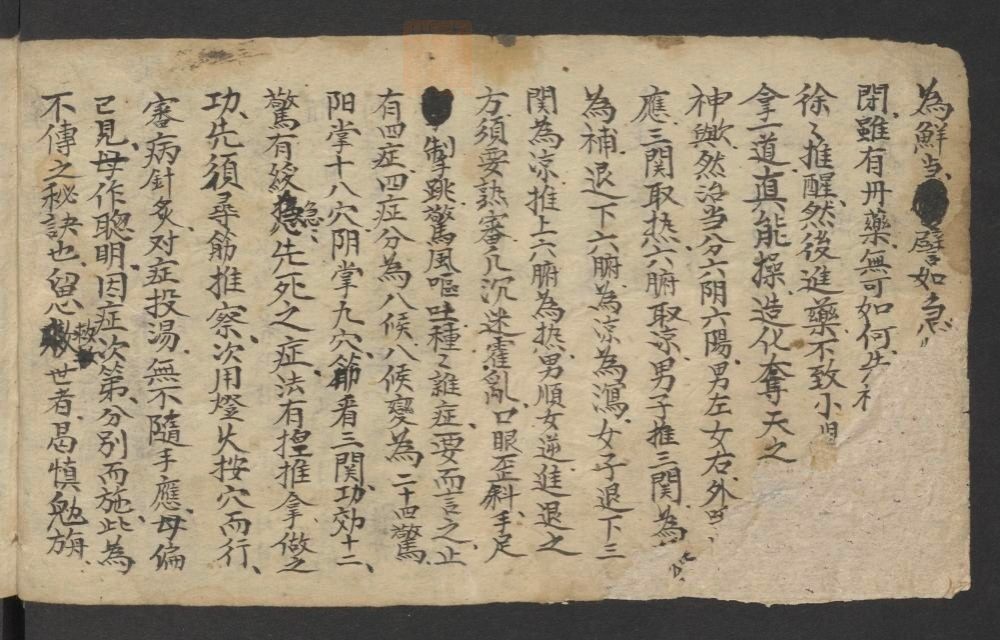 為鮮当譬如急
閉雖有丹藥無可如何先
徐〻推醒然後進藥不致小児
拿一道真能操造化奪天之
神歟然治当分六阴六陽男左女右外
應三関取热六腑取凉男子推三関為
為補退下六腑為凉為瀉女子退下三
関為凉推上六腑為热男順女逆進退之
方須要熟審凡沉迷霍亂口眼歪斜手足
掣跳驚風嘔吐種〻雜症要而言之止
有四症四症分為八候八候變為二十四驚
阳掌十八穴阴掌九穴節看三関功効十二
驚有緩急先死之症法有揑推拿做之
功先須尋筋推察次用燈火按穴而行
審病針炙对症投湯無不隨手應毋偏
已見毋作聰明因症次第分別而施此為
不傳之秘訣也留心救世者曷慎勉旃